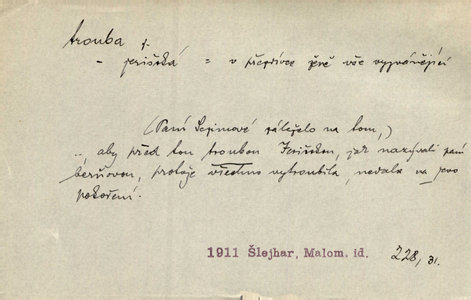 trouba f.
- jerišská = v přezdívce ženě vše vyzvánějící
(Paní Sejmové záleželo na tom,)
.., aby před tou troubou Jerišskou, jak nazývali paní
, protože všechno vytroubila, nedala na jevo
pokoření.
1911 Šlejhar, Malom. id. 228, 31.